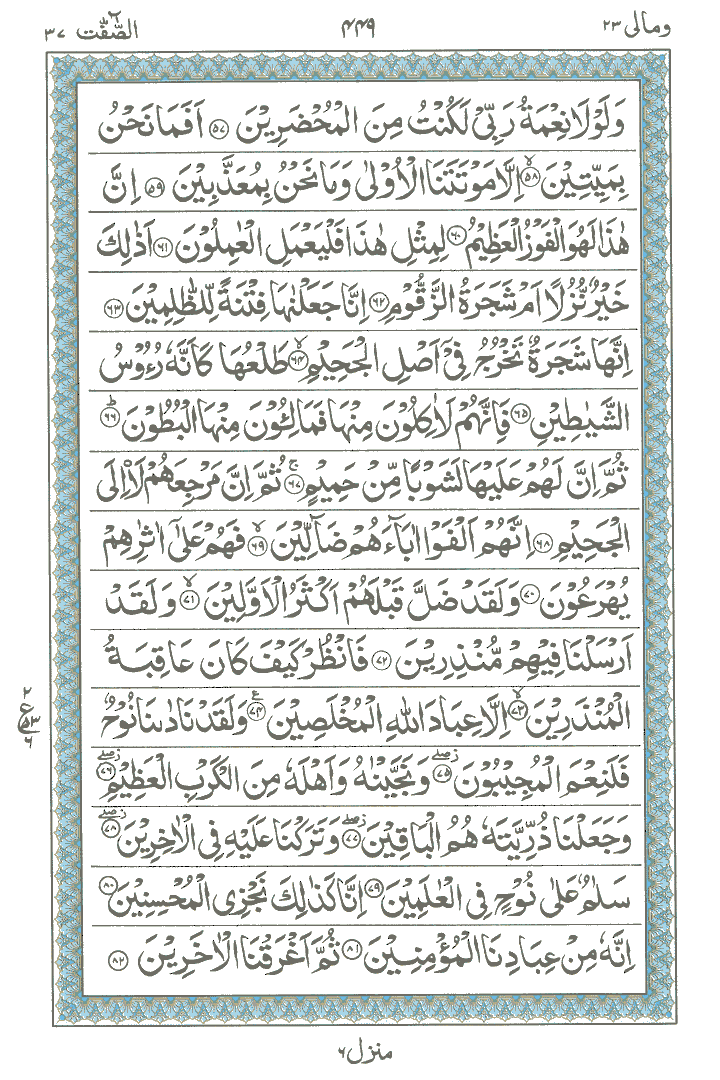 ومالی ٢٣ ٤٤٩ الصّٰٓفّٰت ٣٧
وَلَوْلَا نِعْمَةُ رَبِّيْ لَكُنْتُ مِنَ الْمُحْضَرِيْنَ ﴿٥٧﴾ اَفَمَا نَحْنُ
بِمَيِّتِيْنَ ﴿٥٨﴾ۙ اِلَّا مَوْتَتَنَا الْاُوْلٰى وَمَا نَحْنُ بِمُعَذَّبِيْنَ ﴿٥٩﴾ اِنَّ
هٰذَا لَهُوَ الْفَوْزُ الْعَظِيْمُ ﴿٦٠﴾ لِمِثْلِ هٰذَا فَلْيَعْمَلِ الْعٰمِلُوْنَ ﴿٦١﴾ اَذٰلِكَ
خَيْرٌ نُّزُلًا اَمْ شَجَرَةُ الزَّقُّوْمِ ﴿٦٢﴾ اِنَّا جَعَلْنٰهَا فِتْنَةً لِّلظّٰلِمِيْنَ ﴿٦٣﴾
اِنَّهَا شَجَرَةٌ تَخْرُجُ فِيْٓ اَصْلِ الْجَحِيْمِ ﴿٦٤﴾ۙ طَلْعُهَا كَاَنَّهٗ رُءُوْسُ
الشَّيٰطِيْنِ ﴿٦٥﴾ فَاِنَّهُمْ لَاٰكِلُوْنَ مِنْهَا فَمَالِـُٔوْنَ مِنْهَا الْبُطُوْنَ ﴿٦٦﴾ؕ
ثُمَّ اِنَّ لَهُمْ عَلَيْهَا لَشَوْبًا مِّنْ حَمِيْمٍ ﴿٦٧﴾ۚ ثُمَّ اِنَّ مَرْجِعَهُمْ لَا۟اِلَى
الْجَحِيْمِ ﴿٦٨﴾ اِنَّهُمْ اَلْفَوْا اٰبَآءَهُمْ ضَآلِّيْنَ ﴿٦٩﴾ۙ فَهُمْ عَلٰٓى اٰثٰرِهِمْ
يُهْرَعُوْنَ ﴿٧٠﴾ وَلَقَدْ ضَلَّ قَبْلَهُمْ اَكْثَرُ الْاَوَّلِيْنَ ﴿٧١﴾ۙ وَلَقَدْ
اَرْسَلْنَا فِيْهِمْ مُّنْذِرِيْنَ ﴿٧٢﴾ فَانْظُرْ كَيْفَ كَانَ عَاقِبَةُ
الْمُنْذَرِيْنَ ﴿٧٣﴾ۙ اِلَّا عِبَادَ اللّٰهِ الْمُخْلَصِيْنَ ﴿٧٤﴾ؑ وَلَقَدْ نَادٰىنَا نُوْحٌ
٢
ع
٥٣
٦
فَلَنِعْمَ الْمُجِيْبُوْنَ ﴿٧٥﴾ز صلے وَنَجَّيْنٰهُ وَاَهْلَهٗ مِنَ الْكَرْبِ الْعَظِيْمِ ﴿٧٦﴾ز صلے
وَجَعَلْنَا ذُرِّيَّتَهٗ هُمُ الْبَاقِيْنَ ﴿٧٧﴾ز صلے وَتَرَكْنَا عَلَيْهِ فِى الْاٰخِرِيْنَ ﴿٧٨﴾ز صلے
سَلٰمٌ عَلٰى نُوْحٍ فِى الْعٰلَمِيْنَ ﴿٧٩﴾ اِنَّا كَذٰلِكَ نَجْزِى الْمُحْسِنِيْنَ ﴿٨٠﴾
اِنَّهٗ مِنْ عِبَادِنَا الْمُؤْمِنِيْنَ ﴿٨١﴾ ثُمَّ اَغْرَقْنَا الْاٰخَرِيْنَ ﴿٨٢﴾
منزل ٦